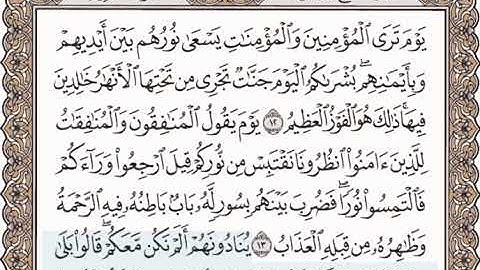 يَوْمَ تَرَى ٱلْمُؤْمِنِينَ وَٱلْمُؤْمِنَٰتِ يَسْعَىٰ نُورُهُم بَيْنَ أَيْدِيهِمْ
وَبِأَيْمَٰنِهِمۖ بُشْرَىٰكُمُ ٱلْيَوْمَ جَنَّٰتٌ تَجْرِى مِن تَحْتِهَا ٱلْأَنْهَٰرُ خَٰلِدِينَ
فِيهَاۚ ذَٰلِكَ هُوَ ٱلْفَوْزُ ٱلْعَظِيمُ ١٢ يَوْمَ يَقُولُ ٱلْمُنَٰفِقُونَ وَٱلْمُنَٰفِقَٰتُ
لِلَّذِينَ ءَامَنُوا۟ ٱنظُرُونَا نَقْتَبِسْ مِن نُّورِكُمْ قِيلَ ٱرْجِعُوا۟ وَرَآءَكُمْ
فَٱلْتَمِسُوا۟ نُورًاۖ فَضُرِبَ بَيْنَهُم بِسُورٍ لَّهُۥ بَابٌۢ بَاطِنُهُۥ فِيهِ ٱلرَّحْمَةُ
وَظَٰهِرُهُۥ مِن قِبَلِهِ ٱلْعَذَابُ ١٣ يُنَادُونَهُمْ أَلَمْ نَكُن مَّعَكُمْۖ قَالُوا۟ بَلَىٰ